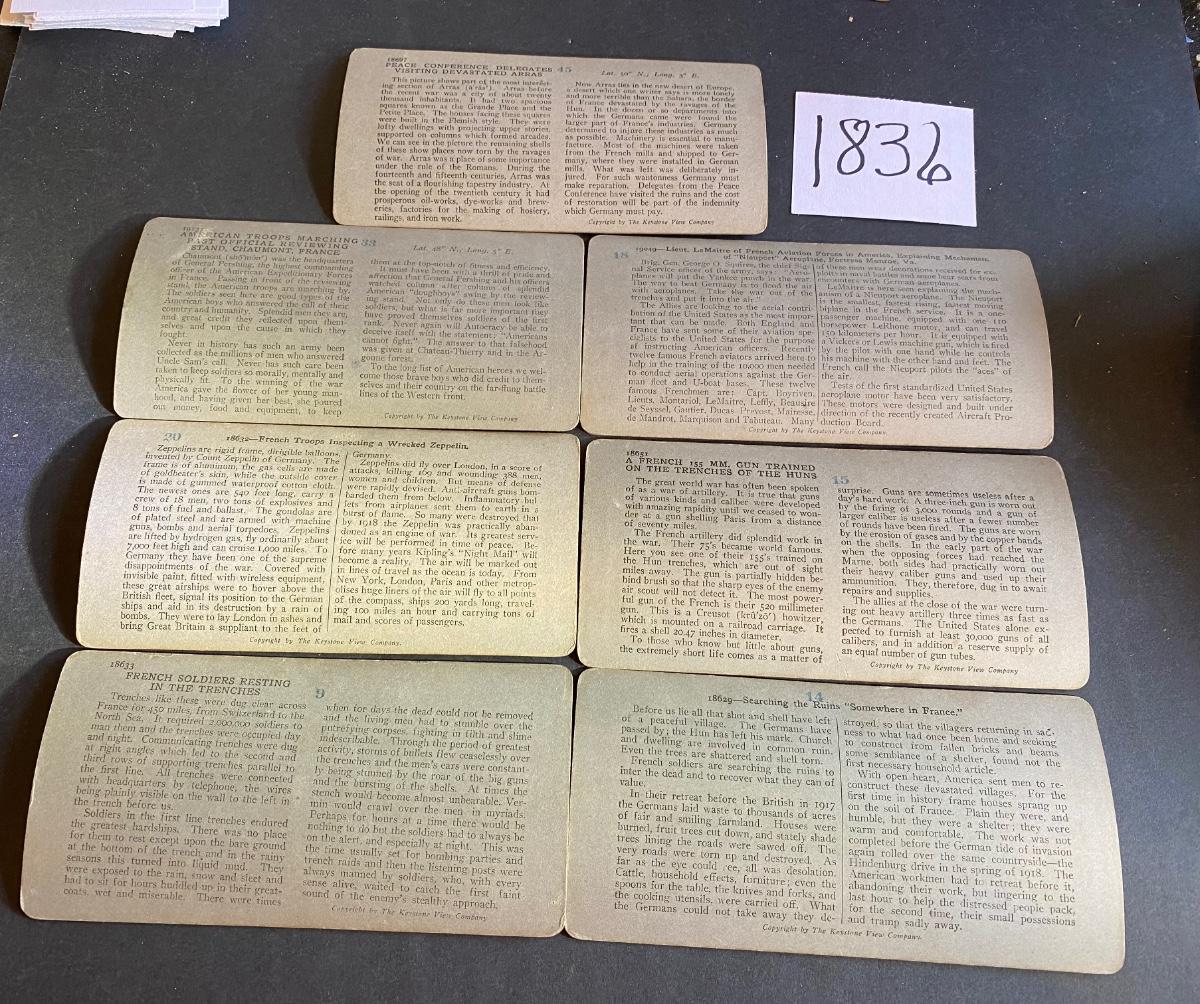 18697
PEACE CONFERENCE DELEGATES
VISITING DEVASTATED ARRAS
45
Lat. 50° N.; Long. 3° E.
This picture shows part of the most interest-
ing section of Arras (a'räs'). Arras before
the recent war was a city of about twenty
thousand inhabitants. It had two spacious
squares known as the Grande Place and the
Petite Place. The houses facing these squares
were built in the Flemish style. They were
lofty dwellings with projecting upper stories,
supported on columns which formed arcades.
We can see in the picture the remaining shells
of these show places now torn by the ravages
of war. Arras was a place of some importance
under the rule of the Romans. During the
fourteenth and fifteenth centuries, Arras was
the seat of a flourishing tapestry industry. At
the opening of the twentieth century it had
prosperous oil-works, dye-works and brew-
eries, factories for the making of hosiery,
railings, and iron work.
Now Arras lies in the new desert of Europe,
a desert which one writer says is more lonely
and more terrible than the Sahara, the border
of France devastated by the ravages of the
Hun. In the dozen or so departments into
which the Germans came were found the
larger part of France's industries. Germany
determined to injure these industries as much
as possible. Machinery is essential to manu-
facture. Most of the machines were taken
from the French mills and shipped to Ger-
many, where they were installed in German
mills. What was left was deliberately in-
jured. For such wantonness Germany must
make reparation. Delegates from the Peace
Conference have visited the ruins and the cost
of restoration will be part of the indemnity
which Germany must pay.
Copyright by The Keystone View Company
1836
AMERICAN TROOPS MARCHING
PAST OFFICIAL REVIEWING
STAND, CHAUMONT, FRANCE
33
Lat. 48° N.; Long. 5° E.
Chaumont (shō'môn') was the headquarters
of General Pershing, the highest commanding
officer of the American Expeditionary Forces
in France. Passing in front of the reviewing
stand, the American troops are marching by.
The soldiers seen here are good types of the
American boys who answered the call of their
country and humanity. Splendid men they are,
and great credit they reflected upon them-
selves and upon the cause in which they
fought.
Never in history has such an army been
collected as the millions of men who answered
Uncle Sam's call. Never has such care been
taken to keep soldiers so morally, mentally and
physically fit. To the winning of the war
America gave the flower of her young man-
hood, and having given her best, she poured
out money, food and equipment, to keep
them at the top-notch of fitness and efficiency.
It must have been with a thrill of pride and
affection that General Pershing and his officers
watched column after column of splendid
American "doughboys" swing by the review-
ing stand. Not only do these men look like
soldiers, but what is far more important they
have proved themselves soldiers of the first
rank. Never again will Autocracy be able to
deceive itself with the statement: "Americans
cannot fight." The answer to that falsehood
was given at Chateau-Thierry and in the Ar-
gonne forest.
To the long list of American heroes we wel-
come those brave boys who did credit to them-
selves and their country on the far-flung battle
lines of the Western front.
Copyright by The Keystone View Company
18
19049—Lieut. LeMaitre of French Aviation Forces in America, Explaining Mechanism
of "Nieuport" Aeroplane, Fortress Monroe, Va.
Brig. Gen. George O. Squires, the chief Sig-
nal Service officer of the army, says: "Aero-
planes will put the Yankee punch in the war.
The way to beat Germany is to flood the air
with aeroplanes. Take the war out of the
trenches and put it into the air."
The Allies are looking to the aerial contri-
bution of the United States as the most impor-
tant that can be made. Both England and
France have sent some of their aviation spe-
cialists to the United States for the purpose
of instructing American officers. Recently
twelve famous French aviators arrived here to
help in the training of the 10,000 men needed
to conduct aerial operations against the Ger-
man fleet and U-boat bases. These twelve
famous Frenchmen are: Capt. Hoyriven,
Lieuts. Montariol, LeMaitre, Leffly, Beausire
de Seyssel, Gautier, Ducas, Prevost, Mairesse,
de Mandrot, Marquison and Tabuteau. Many
of these men wear decorations received for ex-
ploits in naval battles and some bear scars from
encounters with German aeroplanes.
LeMaitre is here seen explaining the mech-
anism of a Nieuport aeroplane. The Nieuport
is the smallest, fastest rising, fastest moving
biplane in the French service. It is a one-
passenger machine, equipped with one 110
horsepower LeRhone motor, and can travel
150 kilometers per hour. It is equipped with
a Vickers or Lewis machine gun, which is fired
by the pilot with one hand while he controls
his machine with the other hand and feet. The
French call the Nieuport pilots the "aces" of
the air.
Tests of the first standardized United States
aeroplane motor have been very satisfactory.
These motors were designed and built under
direction of the recently created Aircraft Pro-
duction Board.
Copyright by The Keystone View Company.
20
18632—French Troops Inspecting a Wrecked Zeppelin.
Zeppelins are rigid frame, dirigible balloons,
invented by Count Zeppelin of Germany. The
frame is of aluminum, the gas cells are made
of goldbeater's skin, while the outside cover
is made of gummed waterproof cotton cloth.
The newest ones are 540 feet long, carry a
crew of 18 men, two tons of explosives and
8 tons of fuel and ballast. The gondolas are
of plated steel and are armed with machine
guns, bombs and aerial torpedoes. Zeppelins
are lifted by hydrogen gas, fly ordinarily about
7,000 feet high and can cruise 1,000 miles. To
Germany they have been one of the supreme
disappointments of the war. Covered with
invisible paint, fitted with wireless equipment,
these great airships were to hover above the
British fleet, signal its position to the German
ships and aid in its destruction by a rain of
bombs. They were to lay London in ashes and
bring Great Britain a suppliant to the feet of
Germany.
Zeppelins did fly over London, in a score of
attacks, killing 169 and wounding 388, men,
women and children. But means of defense
were rapidly devised. Anti-aircraft guns bom-
barded them from below. Inflammatory bul-
lets from airplanes sent them to earth in a
burst of flame. So many were destroyed that
by 1918 the Zeppelin was practically aban-
doned as an engine of war. Its greatest serv-
ice will be performed in time of peace. Be-
fore many years Kipling's "Night Mail" will
become a reality. The air will be marked out
in lines of travel as the ocean is today. From
New York, London, Paris and other metrop-
olises huge liners of the air will fly to all points
of the compass, ships 200 yards long, travel-
ing 100 miles an hour and carrying tons of
mail and scores of passengers.
Copyright by The Keystone View Company.
18651
A FRENCH 155 MM. GUN TRAINED
ON THE TRENCHES OF THE HUNS
15
The great world war has often been spoken
of as a war of artillery. It is true that guns
of various kinds and caliber were developed
with amazing rapidity until we ceased to won-
der at a gun shelling Paris from a distance
of seventy miles.
The French artillery did splendid work in
the war. Their 75's became world famous.
Here you see one of their 155's trained on
the Hun trenches, which are out of sight
miles away. The gun is partially hidden be-
hind brush so that the sharp eyes of the enemy
air scout will not detect it. The most power-
ful gun of the French is their 520 millimeter
gun. This is a Creusot (krû'zō') howitzer,
which is mounted on a railroad carriage. It
fires a shell 20.47 inches in diameter.
To those who know but little about guns,
the extremely short life comes as a matter of
surprise. Guns are sometimes useless after a
day's hard work. A three-inch gun is worn out
by the firing of 3,000 rounds and a gun of
larger caliber is useless after a fewer number
of rounds have been fired. The guns are worn
by the erosion of gases and by the copper bands
on the shells. In the early part of the war
when the opposing forces had reached the
Marne, both sides had practically worn out
their heavy caliber guns and used up their
ammunition. They, therefore, dug in to await
repairs and supplies.
The allies at the close of the war were turn-
ing out heavy artillery three times as fast as
the Germans. The United States alone ex-
pected to furnish at least 30,000 guns of all
calibers, and in addition a reserve supply of
an equal number of gun tubes.
Copyright by The Keystone View Company
18633
FRENCH SOLDIERS RESTING
IN THE TRENCHES
9
Trenches like these were dug clear across
France for 450 miles, from Switzerland to the
North Sea. It required 2,000,000 soldiers to
man them and the trenches were occupied day
and night. Communicating trenches were dug
at right angles which led to the second and
third rows of supporting trenches parallel to
the first line. All trenches were connected
with headquarters by telephone, the wires
being plainly visible on the wall to the left in
the trench before us.
Soldiers in the first line trenches endured
the greatest hardships. There was no place
for them to rest except upon the bare ground
at the bottom of the trench, and in the rainy
seasons this turned into liquid mud. They
were exposed to the rain, snow and sleet and
had to sit for hours huddled up in their great-
coats, wet and miserable. There were times
when for days the dead could not be removed
and the living men had to stumble over the
putrefying corpses, fighting in filth and slime
indescribable. Through the period of greatest
activity, storms of bullets flew ceaselessly over
the trenches and the men's ears were constant-
ly being stunned by the roar of the big guns
and the bursting of the shells. At times the
stench would become almost unbearable. Ver-
min would crawl over the men in myriads.
Perhaps for hours at a time there would be
nothing to do but the soldiers had to always be
on the alert, and especially at night. This was
the time usually set for bombing parties and
trench raids and then the listening posts were
always manned by soldiers, who, with every
sense alive, waited to catch the first faint
sound of the enemy's stealthy approach.
Copyright by The Keystone View Company
14
18629—Searching the Ruins "Somewhere in France."
Before us lie all that shot and shell have left
of a peaceful village. The Germans have
passed by; the Hun has left his mark. Church
and dwelling are involved in common ruin.
Even the trees are shattered and shell torn.
French soldiers are searching the ruins to
inter the dead and to recover what they can of
value.
In their retreat before the British in 1917
the Germans laid waste to thousands of acres
of fair and smiling farmland. Houses were
burned, fruit trees cut down, and stately shade
trees lining the roads were sawed off. The
very roads were torn up and destroyed. As
far as the eye could see, all was desolation.
Cattle, household effects, furniture; even the
spoons for the table, the knives and forks, and
the cooking utensils, were carried off. What
the Germans could not take away they de-
stroyed, so that the villagers returning in sad-
ness to what had once been home and seeking
to construct from fallen bricks and beams
some semblance of a shelter, found not the
first necessary household article.
With open heart, America sent men to re-
construct these devastated villages. For the
first time in history frame houses sprang up
on the soil of France. Plain they were, and
humble, but they were a shelter; they were
warm and comfortable. The work was not
completed before the German tide of invasion
again rolled over the same countryside—the
Hindenburg drive in the spring of 1918. The
American workmen had to retreat before it,
abandoning their work, but lingering to the
last hour to help the distressed people pack,
for the second time, their small possessions
and tramp sadly away.
Copyright by The Keystone View Company.